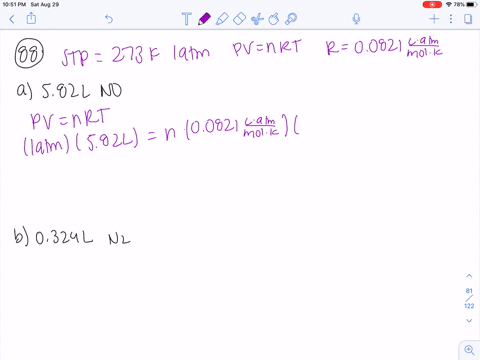 10:51 PM Sat Aug 29
78%
88 STP = 273 K 1atm PV=nRT R=0.0821 L·atm/mol·K
a) 5.82L NO
PV=nRT
(1atm)(5.82L) = n (0.0821 L·atm/mol·K)(
b) 0.324L N2
81
/
122